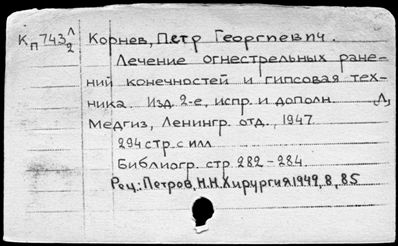 Кп 743 Л/2 Корнев, Петр Георгиевич.
Лечение огнестрельных ране-
ний конечностей и гипсовая тех-
ника. Изд. 2-е, испр. и дополн. Л,
Медгиз, Ленингр. отд., 1947.
294 стр. с илл.
Библиогр. стр. 282-284.
Рец.: Петров, Н.Н. Хирургия 1949, 8, 85